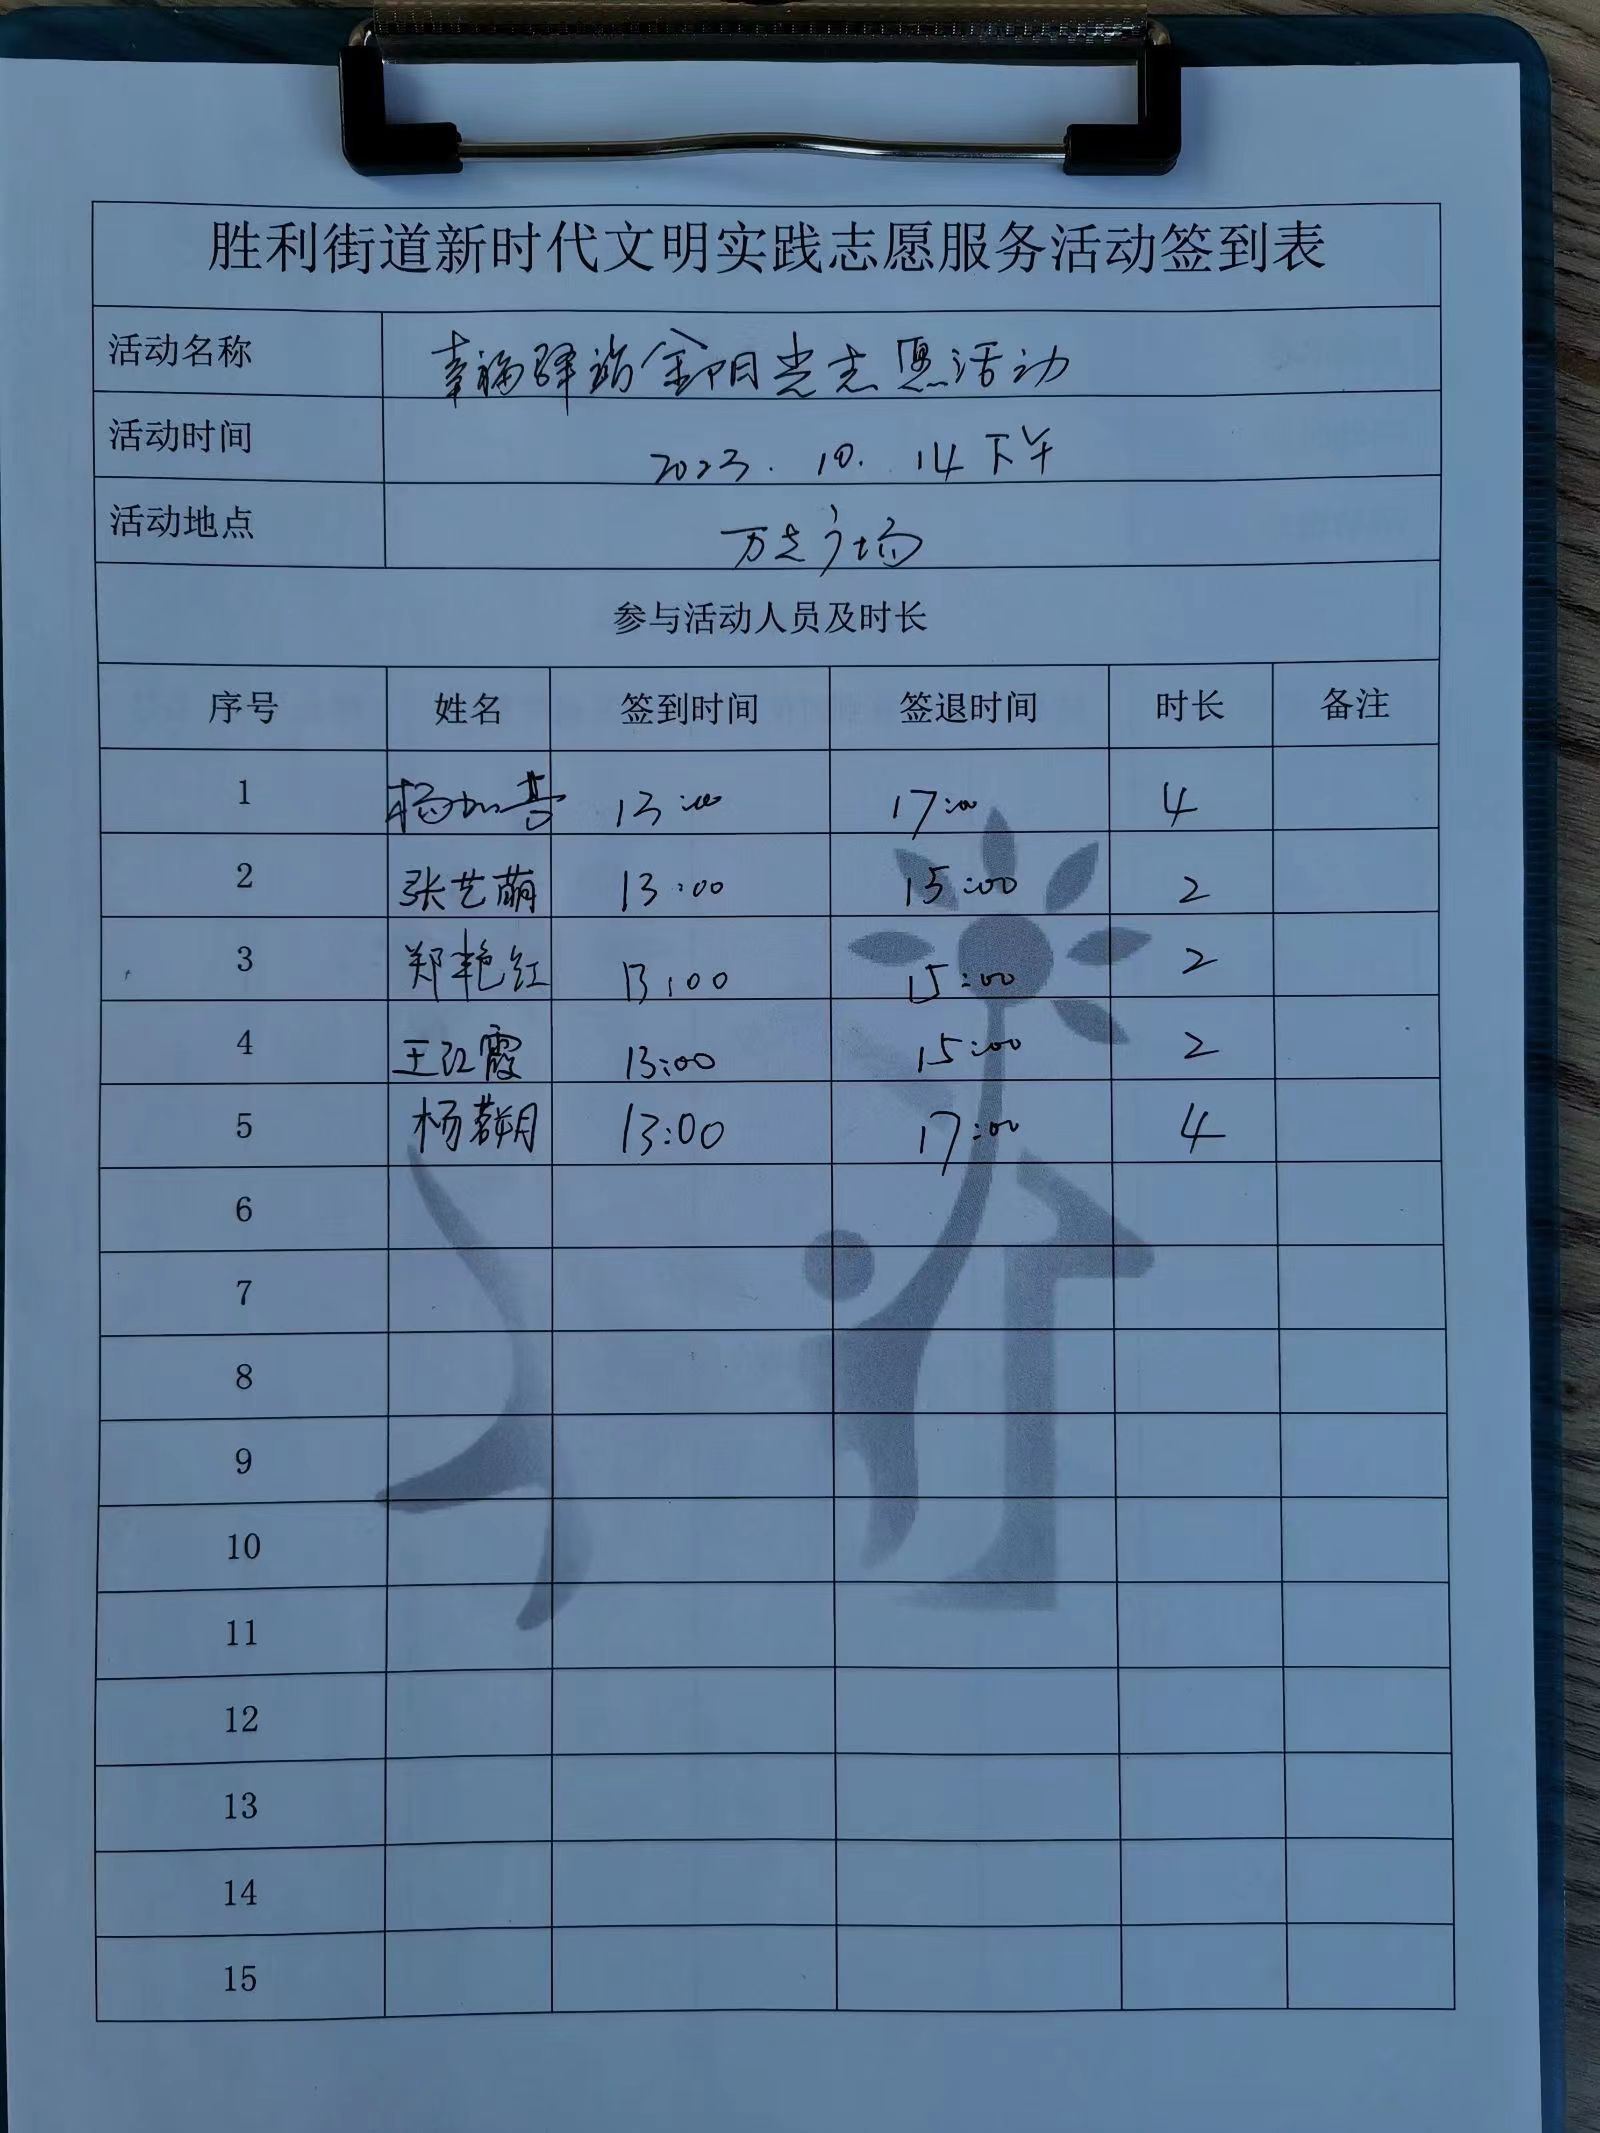 胜利街道新时代文明实践志愿服务活动签到表
活动名称 幸福驿站金阳光志愿活动
活动时间 2023.10.14下午
活动地点 万达广场
参与活动人员及时长
序号 姓名 签到时间 签退时间 时长 备注
1 13:00 17:00 4
2 张艺萌 13:00 15:00 2
3 郑艳红 13:00 15:00 2
4 王红霞 13:00 15:00 2
5 13:00 17:00 4
6
7
8
9
10
11
12
13
14
15